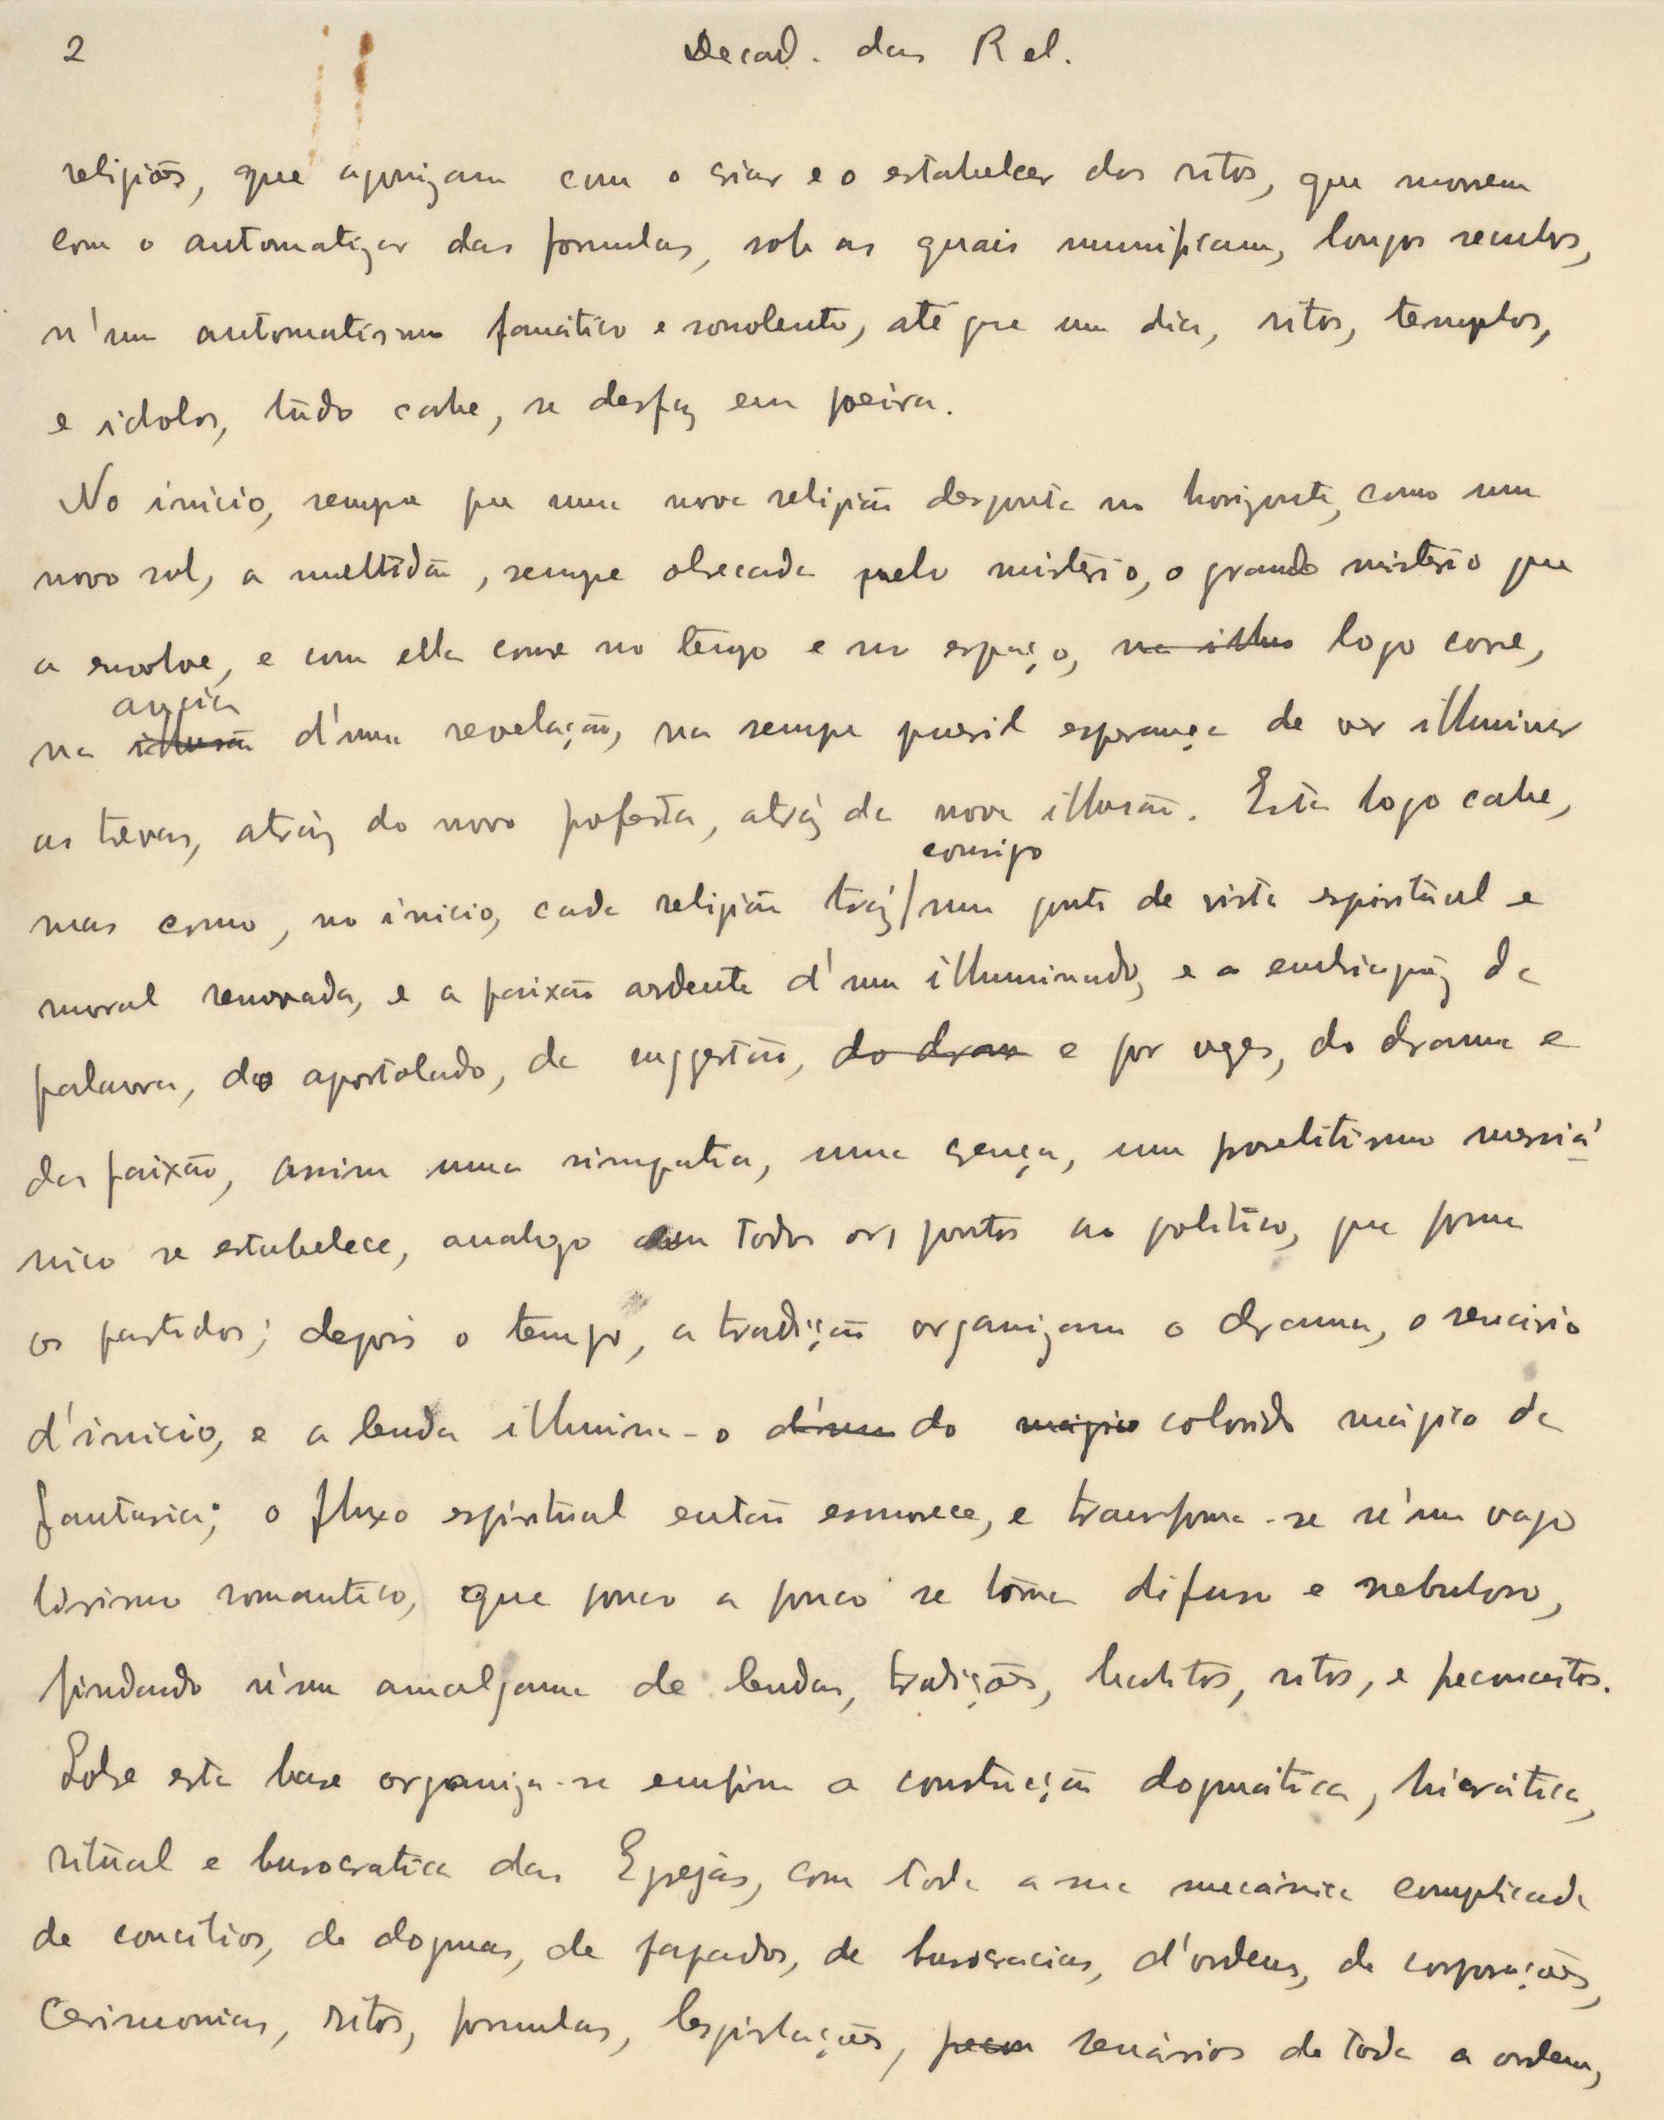 2
Decad. das Rel.
religiões, que agonizam com o criar e o estabelecer dos ritos, que morrem
com o automatizar das formulas, sob as quais mumificam, longos seculos,
n'um automatismo fanático e sonolento, até que um dia, ritos, templos,
e idolos, tudo cahe, se desfaz em poeira.
No inicio, sempre que uma nova religião desponta no horizonte, como um
novo sol, a multidão, sempre obsecada pelo mistério, o grande mistério que
a envolve, e com ella corre no tempo e no espaço, na illus logo corre,
ansia
na illusão d'uma revelação, na sempre pueril esperança de ver illuminar
as trevas, atráz do novo profeta, atráz da nova illusão. Esta logo cahe,
consigo
mas como, no inicio, cada religião tráz/um ponto de vista espiritual e
moral renovada, e a paixão ardente d'um illuminado, e a embriaguêz da
palavra, do apostolado, da suggestão, do dram e por vezes, do drama e
da paixão, assim uma simpatia, uma crença, um proselitismo messiá-
nico se estabelece, analogo em todos os pontos ao politico, que forma
os partidos; depois o tempo, a tradição organizam o drama, o scenário
d'inicio, e a lenda illumina-o d'um do mágico colorido mágico da
fantasia; o fluxo espiritual então esmorece, e transforma-se n'um vago
lirismo romantico, que pouco a pouco se tórna difuso e nebuloso,
findando n'um amalgama de lendas, tradições, habitos, ritos, e preconceitos.
Sobre esta base organiza-se emfim a construção dogmática, hierática,
ritual e burocratica das Egrejas, com toda a sua mecánica complicada
de concilios, de dogmas, de papados, de burocracias, d'ordens, de corporações,
cerimonias, ritos, formulas, legislações, scenários de toda a ordem,